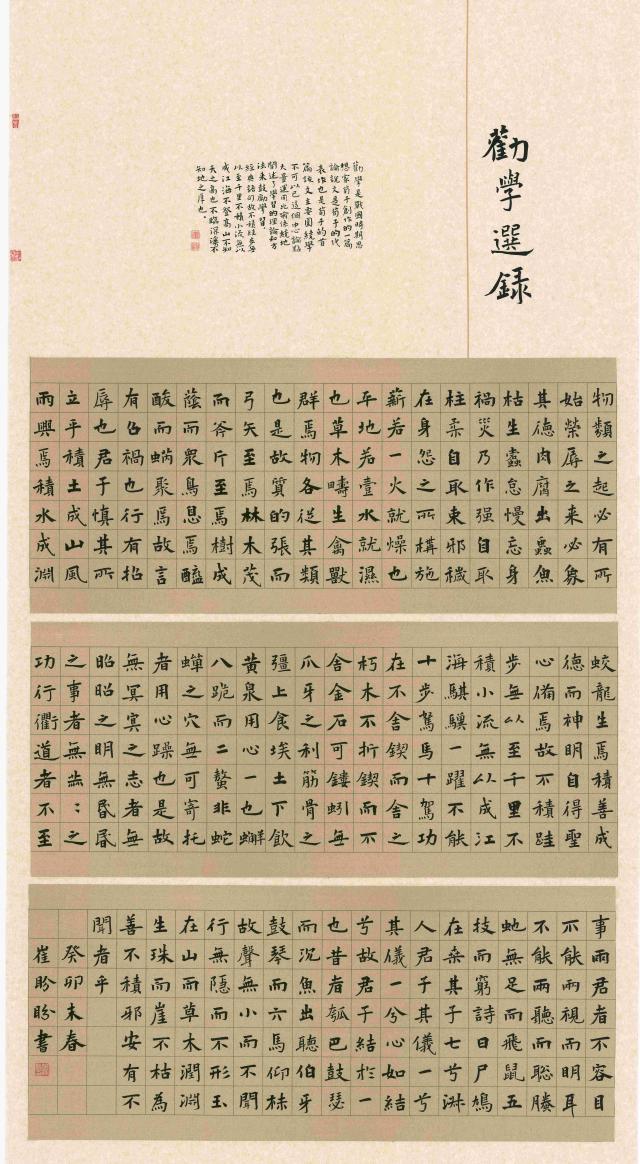 勸學選録
勸學是戰國時期思
想家荀子創作的一篇
論說文是荀子的代
表作也是荀子的首
篇該文主要圍繞學
不可以已這個中心論點
大量運用比喻係統地
闡述了學習的理論和方
法来鼓勵學習。
經典語句故不積跬步無
以至千里不積小流無以
成江海不登高山不知
天之高也不臨深谿不
知地之厚也。
物類之起必有所
始榮辱之来必象
其德肉腐出蟲魚
枯生蠹怠慢忘身
禍災乃作强自取
柱柔自取束邪穢
在身怨之所構施
薪若一火就燥也
平地若壹水就濕
也草木疇生禽獸
群焉物各從其類
也是故質的張而
弓矢至焉林木茂
而斧斤至焉樹成
蔭而眾鳥息焉醯
酸而蜹聚焉故言
有召禍也行有招
辱也君子慎其所
立乎積土成山風
雨興焉積水成淵
蛟龍生焉積善成
德而神明自得聖
心備焉故不積跬
步無以至千里不
積小流無以成江
海騏驥一躍不能
十步駑馬十駕功
在不舍鍥而舍之
朽木不折鍥而不
舍金石可鏤蚓無
爪牙之利筋骨之
彊上食埃土下飲
黄泉用心一也蠏
八跪而二螯非蛇
蟬之穴無可寄托
者用心躁也是故
無冥冥之志者無
昭昭之明無昏昏
之事者無赫〻之
功行衢道者不至
事兩君者不容目
不能兩視而明耳
不能兩聽而聡螣
虵無足而飛鼠五
技而窮詩曰尸鳩
在桑其子七兮淑
人君子其儀一兮
其儀一兮心如結
兮故君子結於一
也昔者瓠巴鼓瑟
而沉魚出聽伯牙
鼓琴而六馬仰秣
故聲無小而不聞
行無隱而不形玉
在山而草木潤淵
生珠而崖不枯為
善不積邪安有不
聞者乎
癸卯末春
崔盼盼書